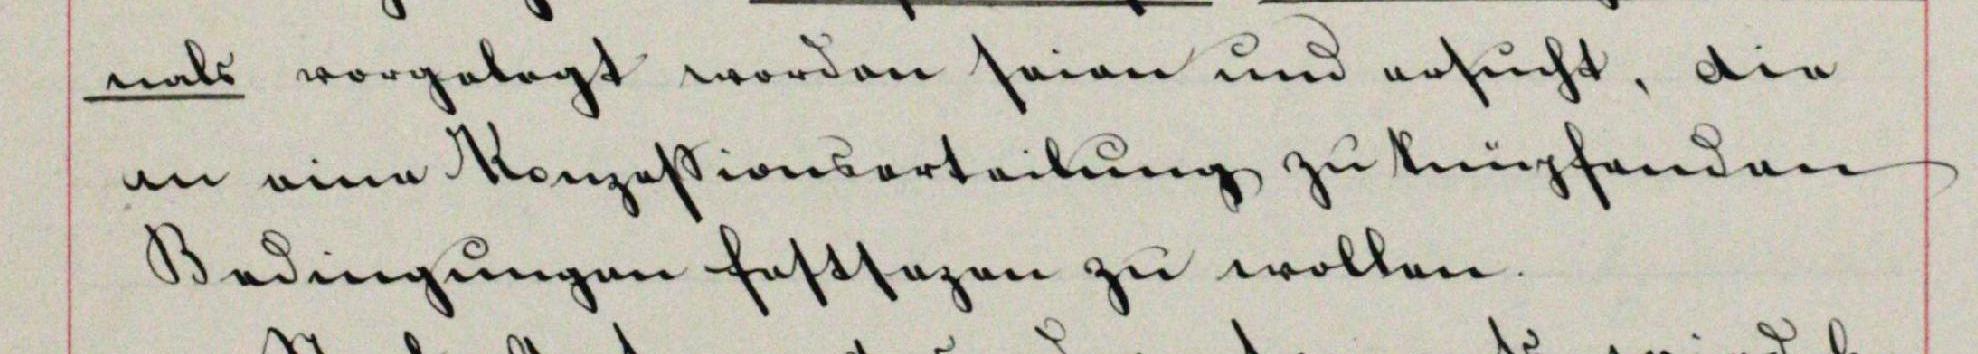 nals vorgelegt worden seien und ersucht, die
an eine Konzessionserteilung zu knüpfenden
Bedingungen festsezen zu wollen.